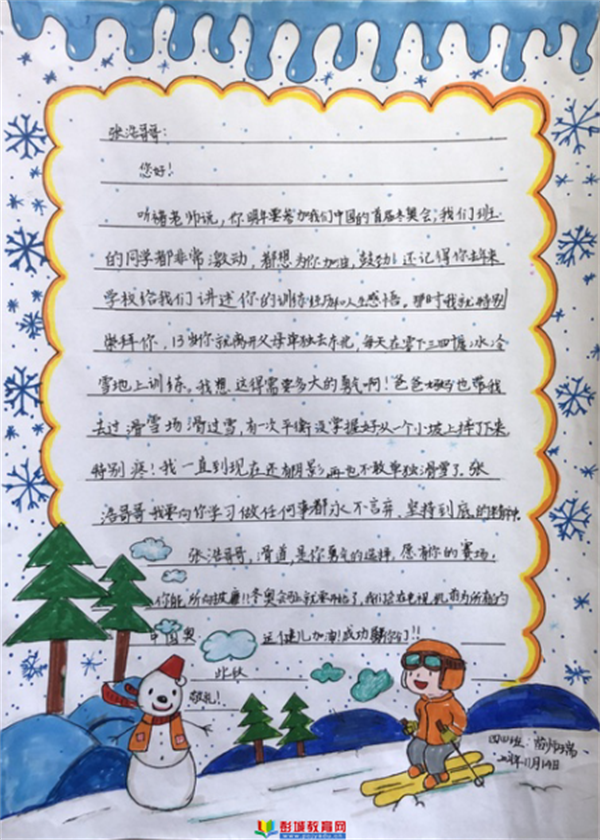 张浩哥哥：
您好！
听褚老师说，你明年要参加我们中国的首届冬奥会，我们班
的同学都非常激动，都想为你加油，鼓劲！还记得你去年来
学校给我们讲述你的训练经历和人生感悟。那时我就特别
崇拜你，13岁你就离开父母单独去东北，每天在零下三四十度冰冷
雪地上训练。我想这得需要多大的勇气啊！爸爸妈妈也带我
去过滑雪场滑过雪，有一次平衡没掌握好从一个小坡上摔了下来
特别疼！我一直到现在还有阴影再也不敢单独滑雪了。张
浩哥哥我要向你学习做任何事都永不言弃、坚持到底的精神。
张浩哥哥，滑道，是你勇气的选择，愿有你的赛场，
你能，所向披靡！！冬奥会马上就要开始了，我们会在电视机前为所有的
中国奥运健儿加油！成功属于你们！！
此致
敬礼！
四四班：
11月14日
彭城教育网